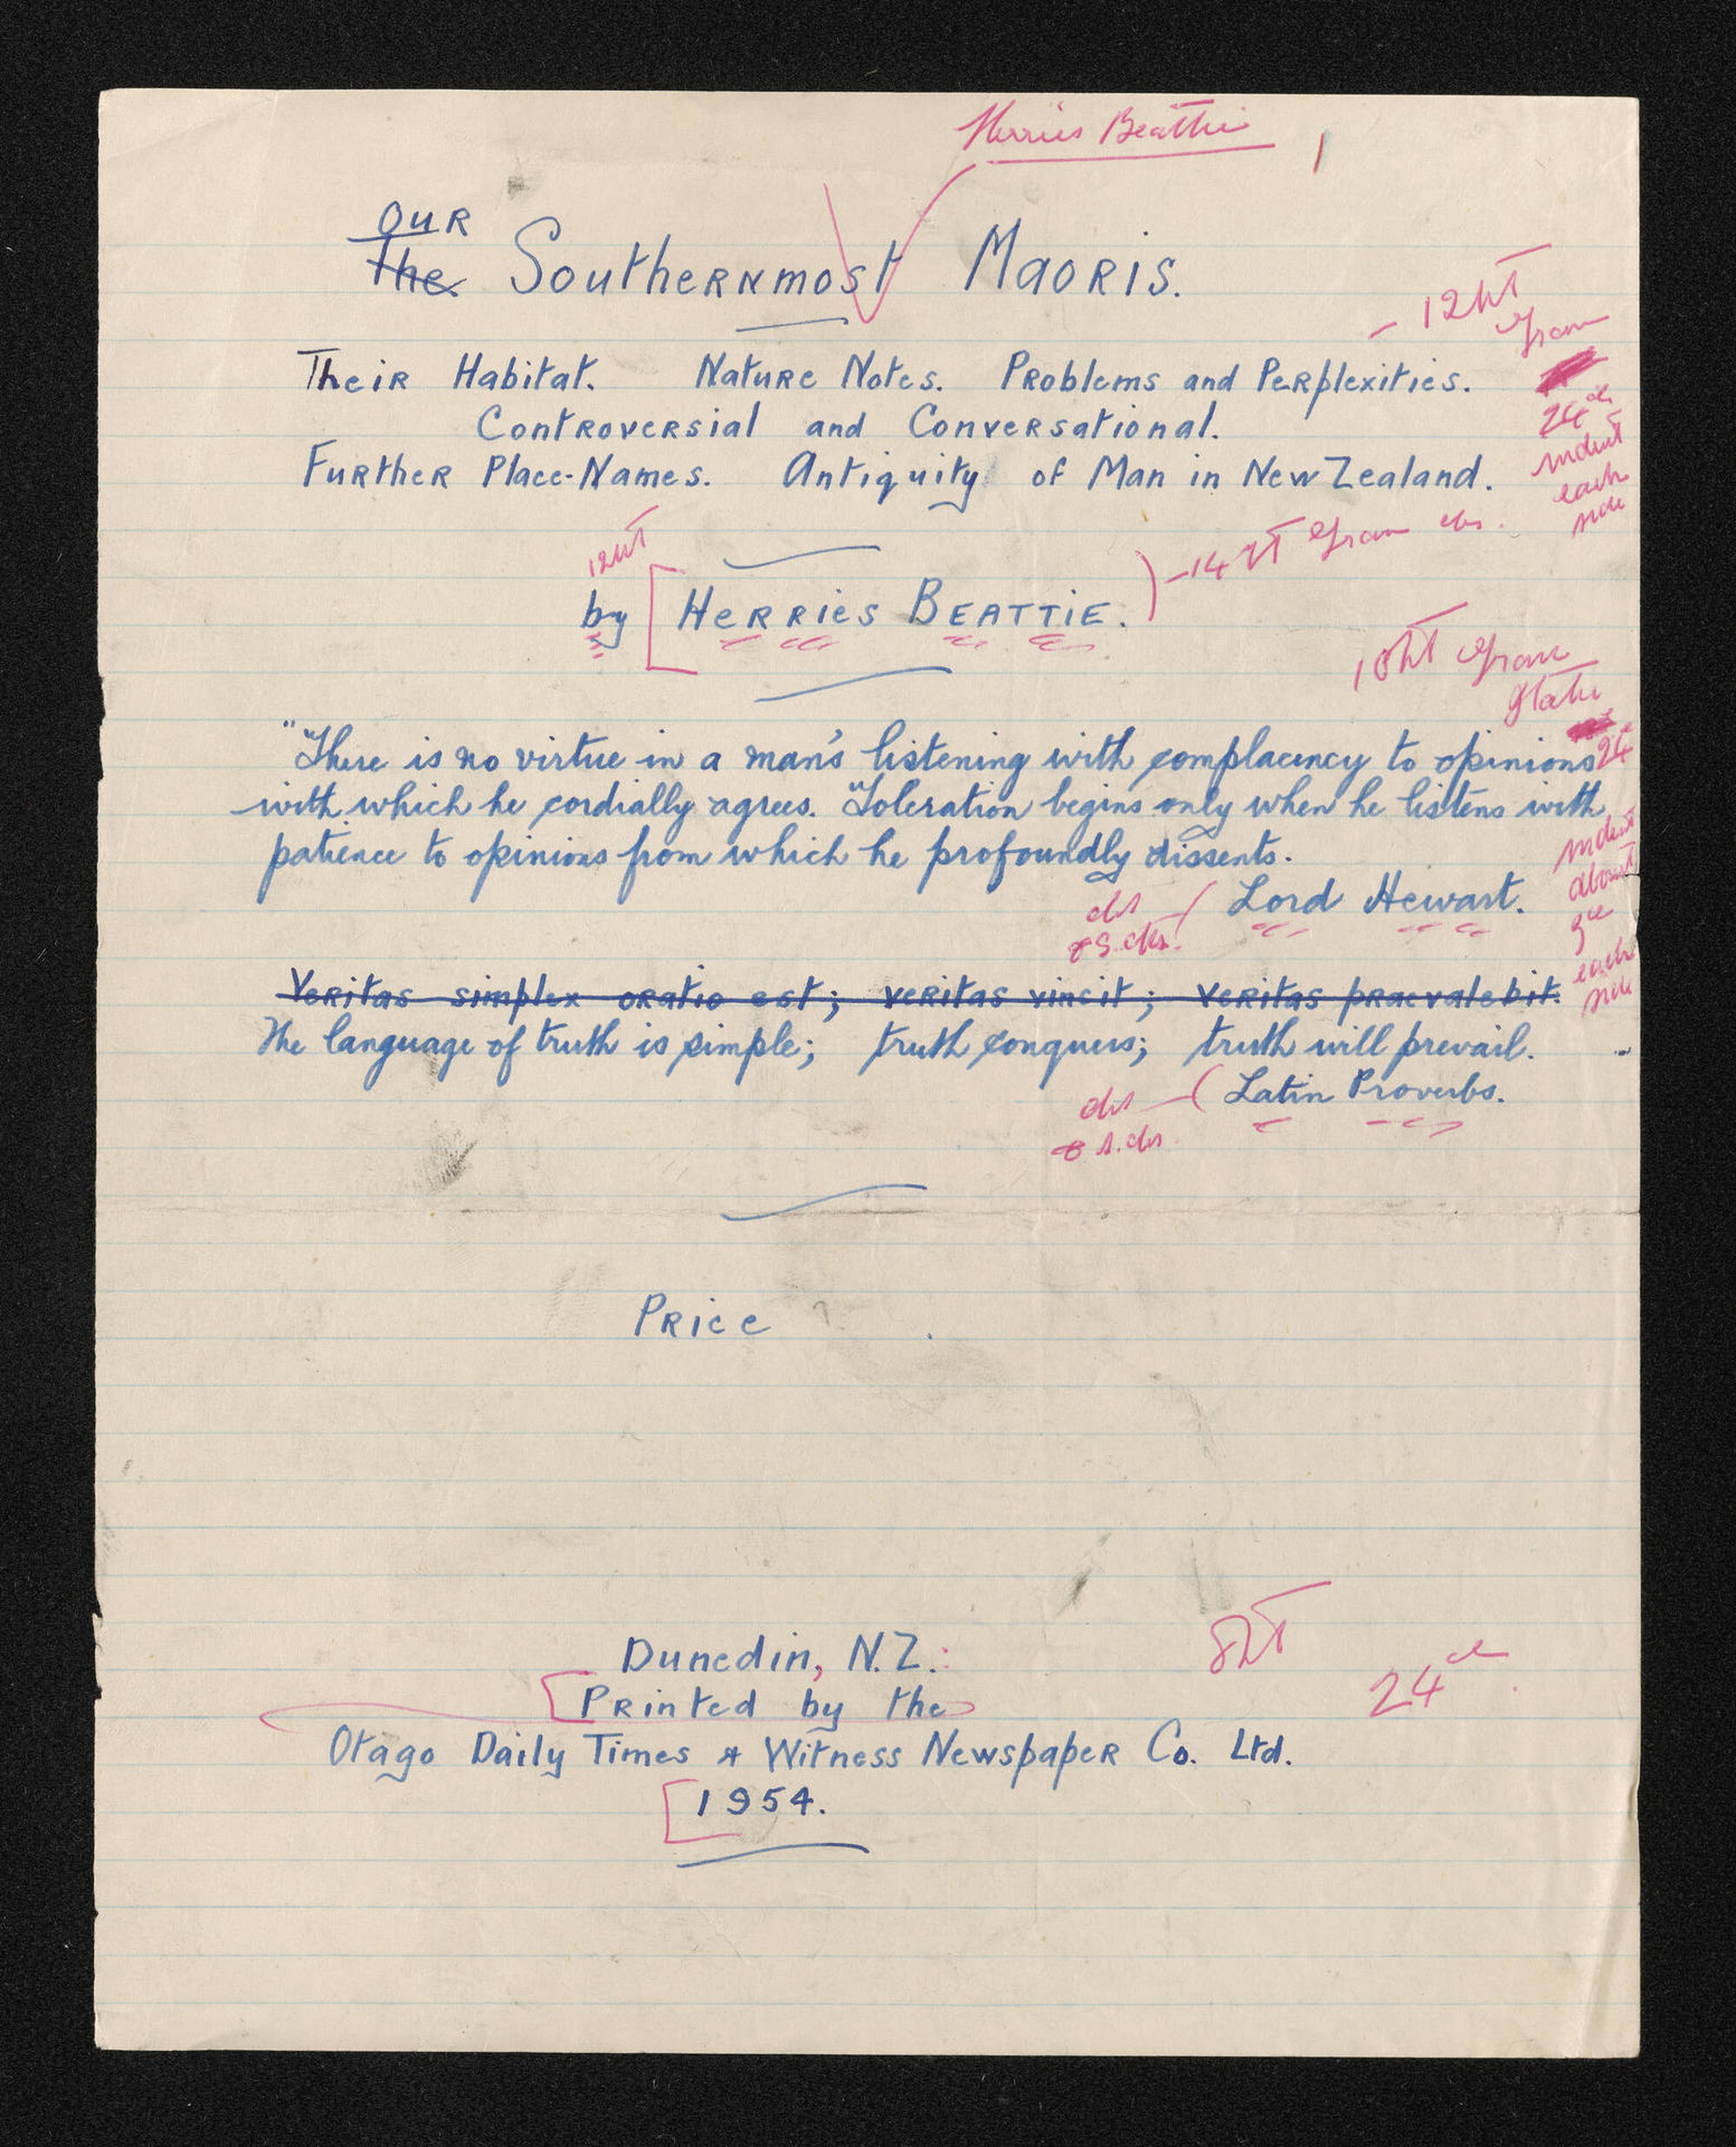 Herries Beattie
1
OUR
The Southernmost Maoris.
Their Habitat. Nature Notes. Problems and Perplexities.
Controversial and Conversational.
Further Place-Names. Antiquity of Man in New Zealand.
- 12 pt
24 indent each side
12 pt
by Herries Beattie.
-14 pt
10 pt
"There is no virtue in a man's listening with complacency to opinions
with which he cordially agrees. Toleration begins only when he listens with
patience to opinions from which he profoundly dissents.
24
indent about each side
Lord Hewart.
Veritas simplex oratio est; veritas vincit; veritas praevalebit.
The language of truth is simple; truth conquers; truth will prevail.
Latin Proverbs.
Price
Dunedin, N.Z.:
Printed by the
Otago Daily Times & Witness Newspaper Co. Ltd.
1954.
8 pt
24